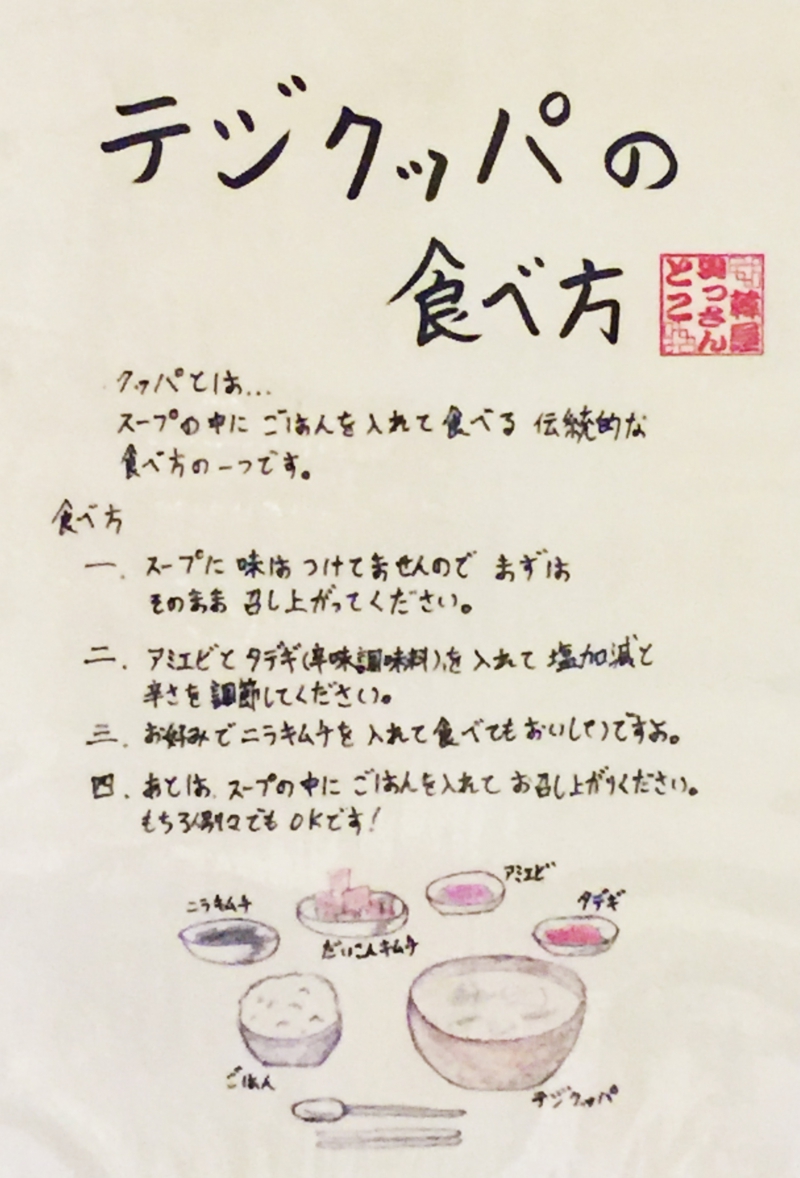 テジクッパの
食べ方
韓屋
奥っさん
とこ
クッパとは...
スープの中に ごはんを入れて 食べる 伝統的な
食べ方の一つです。
食べ方
一. スープに 味は つけてませんので まずは
そのまま 召し上がってください。
二. アミエビと タデギ(辛味調味料)を 入れて 塩加減と
辛さを 調節してください。
三. お好みで ニラキムチを 入れて 食べても おいしいですよ。
四. あとは、スープの中に ごはんを入れて お召し上がりください。
もちろん別々でも OKです!
アミエビ
ニラキムチ
タデギ
だいこんキムチ
ごはん
テジクッパ